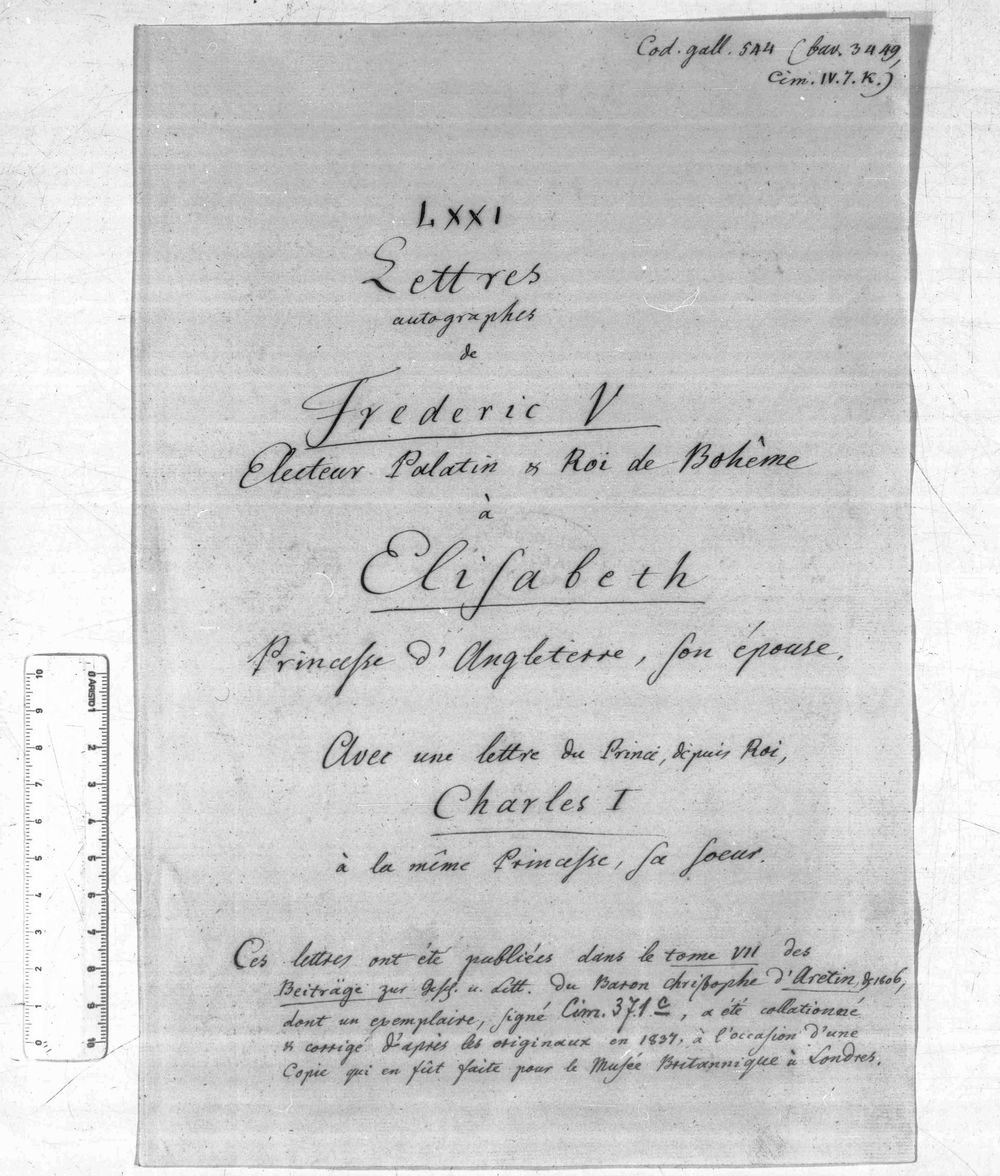 Cod. gall. 544 (bav. 3449,
Cim. IV. 7. K.)
LXXI
Lettres
autographes
de
Frederic V
Electeur Palatin & Roi de Bohême
à
Elisabeth
Princesse d'Angleterre, son épouse.
Avec une lettre du Prince, depuis Roi,
Charles I
à la même Princesse, sa soeur.
Ces lettres ont été publiées dans le tome VII des
Beiträge zur Gesch. u. Litt. du Baron Christophe d'Aretin, de 1806,
dont un exemplaire, signé Cim. 371 c, a été collationné
& corrigé d'après les originaux en 1837, à l'occasion d'une
Copie qui en fût faite pour le Musée Britannique à Londres.
10 9 8 7 6 5 4 3 2 1 0
0 ARISTO 1 2 3 4 5 6 7 8 9 10